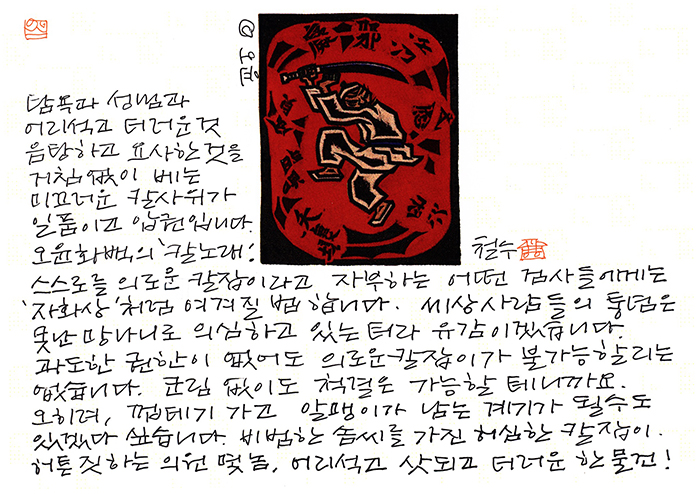 탐욕과 성냄과
어리석고 더러운것
음탕하고 요사한것을
거침없이 베는
미끄러운 칼사위가
일품이고 압권입니다.
오윤화백의 '칼노래!
철수
스스로를 의로운 칼잡이라고 자부하는 어떤 검사들에게는
'자화상'처럼 여겨질 법 합니다. 세상사람들의 통념은
못난 망나니로 의심하고 있는 터라 유감이겠습니다.
과도한 권한이 없어도 의로운칼잡이가 불가능할리는
없습니다. 군림 없이도 척결은 가능할 테니까요.
오히려, 껍데기 가고 알맹이가 남는 계기가 될수도
있겠다 싶습니다. 비범한 솜씨를 가진 허심한 칼잡이.
허튼짓하는 의원 몇놈, 어리석고 삿되고 더러운 한물건!